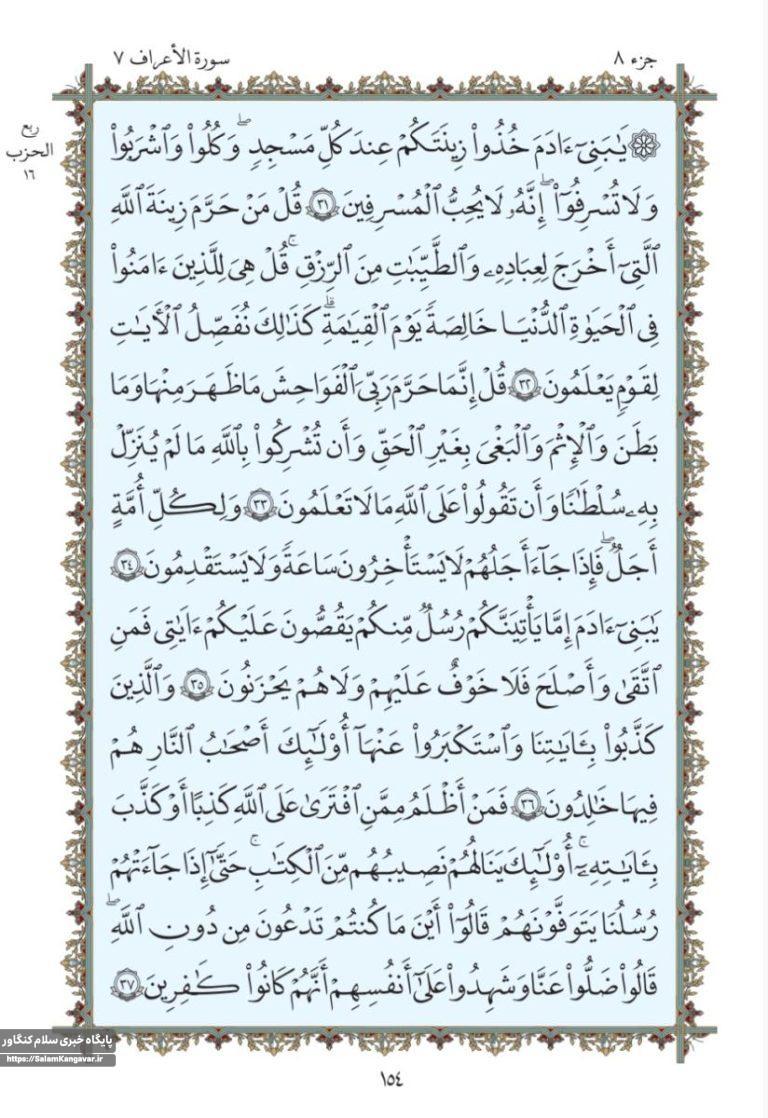 جزء ٨
سورة الأعراف ٧
ربع
الحزب
١٦
۞ يَٰبَنِيٓ ءَادَمَ خُذُواْ زِينَتَكُمْ عِندَ كُلِّ مَسْجِدٍ وَكُلُواْ وَٱشْرَبُواْ
وَلَا تُسْرِفُوٓاْۚ إِنَّهُۥ لَا يُحِبُّ ٱلْمُسْرِفِينَ ٣١ قُلْ مَنْ حَرَّمَ زِينَةَ ٱللَّهِ
ٱلَّتِيٓ أَخْرَجَ لِعِبَادِهِۦ وَٱلطَّيِّبَٰتِ مِنَ ٱلرِّزْقِۚ قُلْ هِيَ لِلَّذِينَ ءَامَنُواْ
فِي ٱلْحَيَوٰةِ ٱلدُّنْيَا خَالِصَةً يَوْمَ ٱلْقِيَٰمَةِۗ كَذَٰلِكَ نُفَصِّلُ ٱلْأٓيَٰتِ
لِقَوْمٍ يَعْلَمُونَ ٣٢ قُلْ إِنَّمَا حَرَّمَ رَبِّيَ ٱلْفَوَٰحِشَ مَا ظَهَرَ مِنْهَا وَمَا
بَطَنَ وَٱلْإِثْمَ وَٱلْبَغْيَ بِغَيْرِ ٱلْحَقِّ وَأَن تُشْرِكُواْ بِٱللَّهِ مَا لَمْ يُنَزِّلْ
بِهِۦ سُلْطَٰنًا وَأَن تَقُولُواْ عَلَى ٱللَّهِ مَا لَا تَعْلَمُونَ ٣٣ وَلِكُلِّ أُمَّةٍ
أَجَلٌۖ فَإِذَا جَآءَ أَجَلُهُمْ لَا يَسْتَأْخِرُونَ سَاعَةً وَلَا يَسْتَقْدِمُونَ ٣٤
يَٰبَنِيٓ ءَادَمَ إِمَّا يَأْتِيَنَّكُمْ رُسُلٌ مِّنكُمْ يَقُصُّونَ عَلَيْكُمْ ءَايَٰتِي فَمَنِ
ٱتَّقَىٰ وَأَصْلَحَ فَلَا خَوْفٌ عَلَيْهِمْ وَلَا هُمْ يَحْزَنُونَ ٣٥ وَٱلَّذِينَ
كَذَّبُواْ بِـَٔايَٰتِنَا وَٱسْتَكْبَرُواْ عَنْهَآ أُوْلَٰٓئِكَ أَصْحَٰبُ ٱلنَّارِ هُمْ
فِيهَا خَٰلِدُونَ ٣٦ فَمَنْ أَظْلَمُ مِمَّنِ ٱفْتَرَىٰ عَلَى ٱللَّهِ كَذِبًا أَوْ كَذَّبَ
بِـَٔايَٰتِهِۦٓۚ أُوْلَٰٓئِكَ يَنَالُهُمْ نَصِيبُهُم مِّنَ ٱلْكِتَٰبِۚ حَتَّىٰٓ إِذَا جَآءَتْهُمْ
رُسُلُنَا يَتَوَفَّوْنَهُمْ قَالُوٓاْ أَيْنَ مَا كُنتُمْ تَدْعُونَ مِن دُونِ ٱللَّهِۖ
قَالُواْ ضَلُّواْ عَنَّا وَشَهِدُواْ عَلَىٰٓ أَنفُسِهِمْ أَنَّهُمْ كَانُواْ كَٰفِرِينَ ٣٧
پایگاه خبری سلام کنگاور
https://SalamKangavar.ir
١٥٤